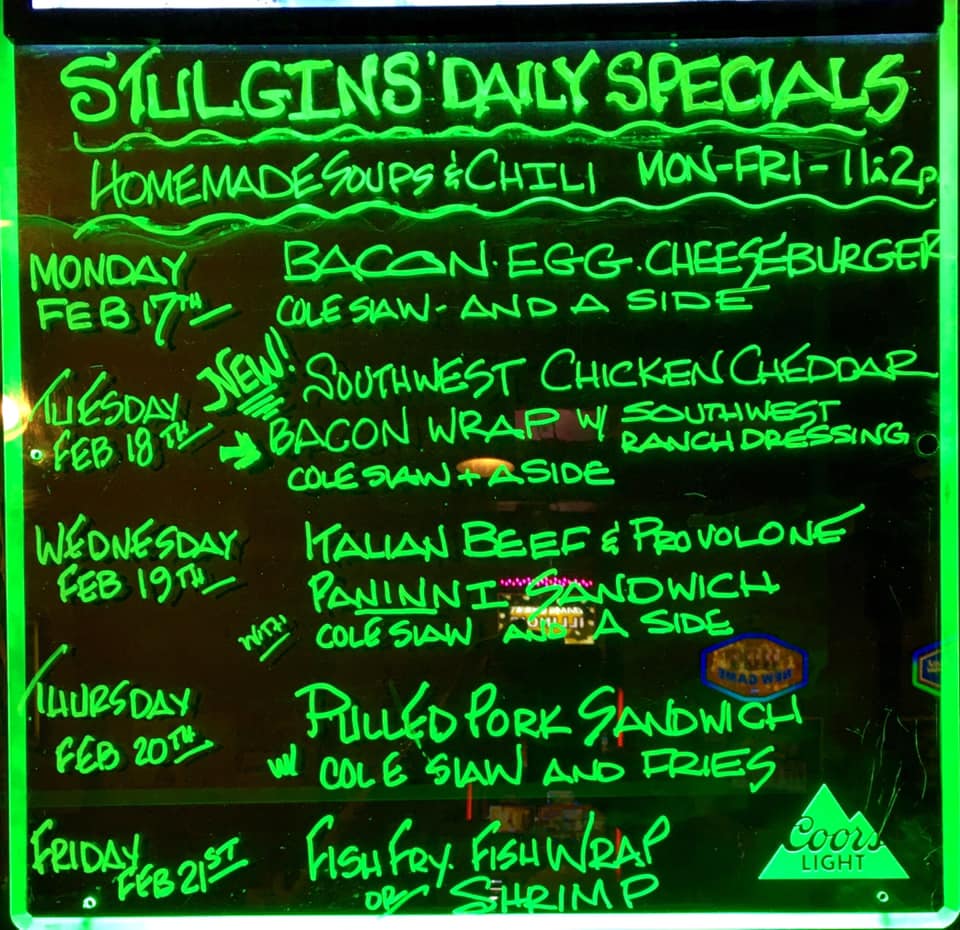 STULGINS' DAILY SPECIALS
HOMEMADE SOUPS & CHILI MON-FRI-11a2p
MONDAY
FEB 17TH
BACON·EGG·CHEESEBURGER
COLE SLAW- AND A SIDE
TUESDAY
FEB 18TH
NEW!
SOUTHWEST CHICKEN CHEDDAR
BACON WRAP W/ SOUTHWEST
RANCH DRESSING
COLE SLAW + A SIDE
WEDNESDAY
FEB 19TH
ITALIAN BEEF & PROVOLONE
PANINNI SANDWICH
WITH
COLE SLAW AND A SIDE
THURSDAY
FEB 20TH
PULLED PORK SANDWICH
W/ COLE SLAW AND FRIES
FRIDAY
FEB 21ST
FISH FRY. FISH WRAP
OR SHRIMP
Coors
LIGHT